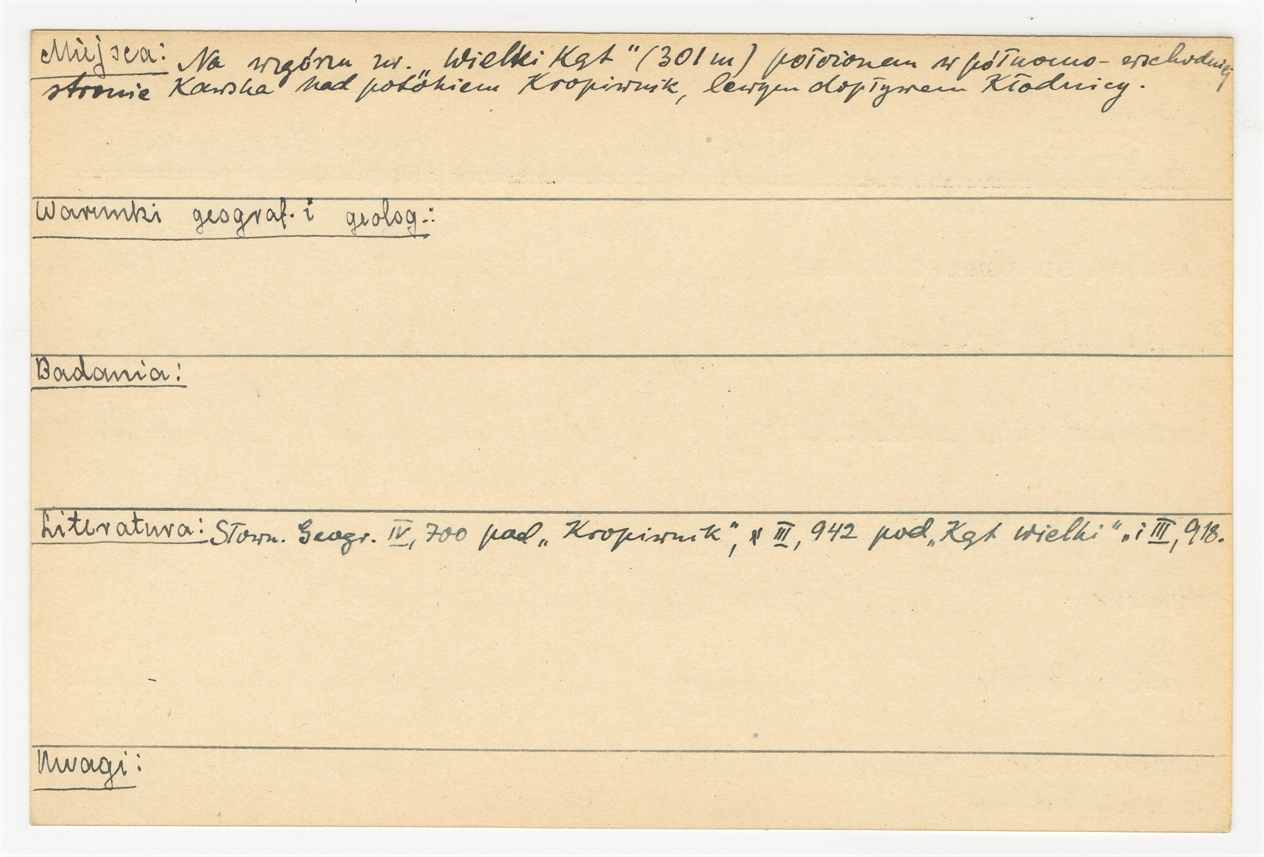 Miejsca: Na wzgórzu zw. „Wielki Kąt" (301 m) położonem w północno-wschodniej
stronie Kawska nad potokiem Kropiwnik, lewym dopływem Kłodnicy.
Warunki geograf. i geolog.:
Badania:
Literatura: Słown. Geogr. IV, 700 pod „Kropiwnik", III, 942 pod „Kąt wielki" i III, 918.
Uwagi: